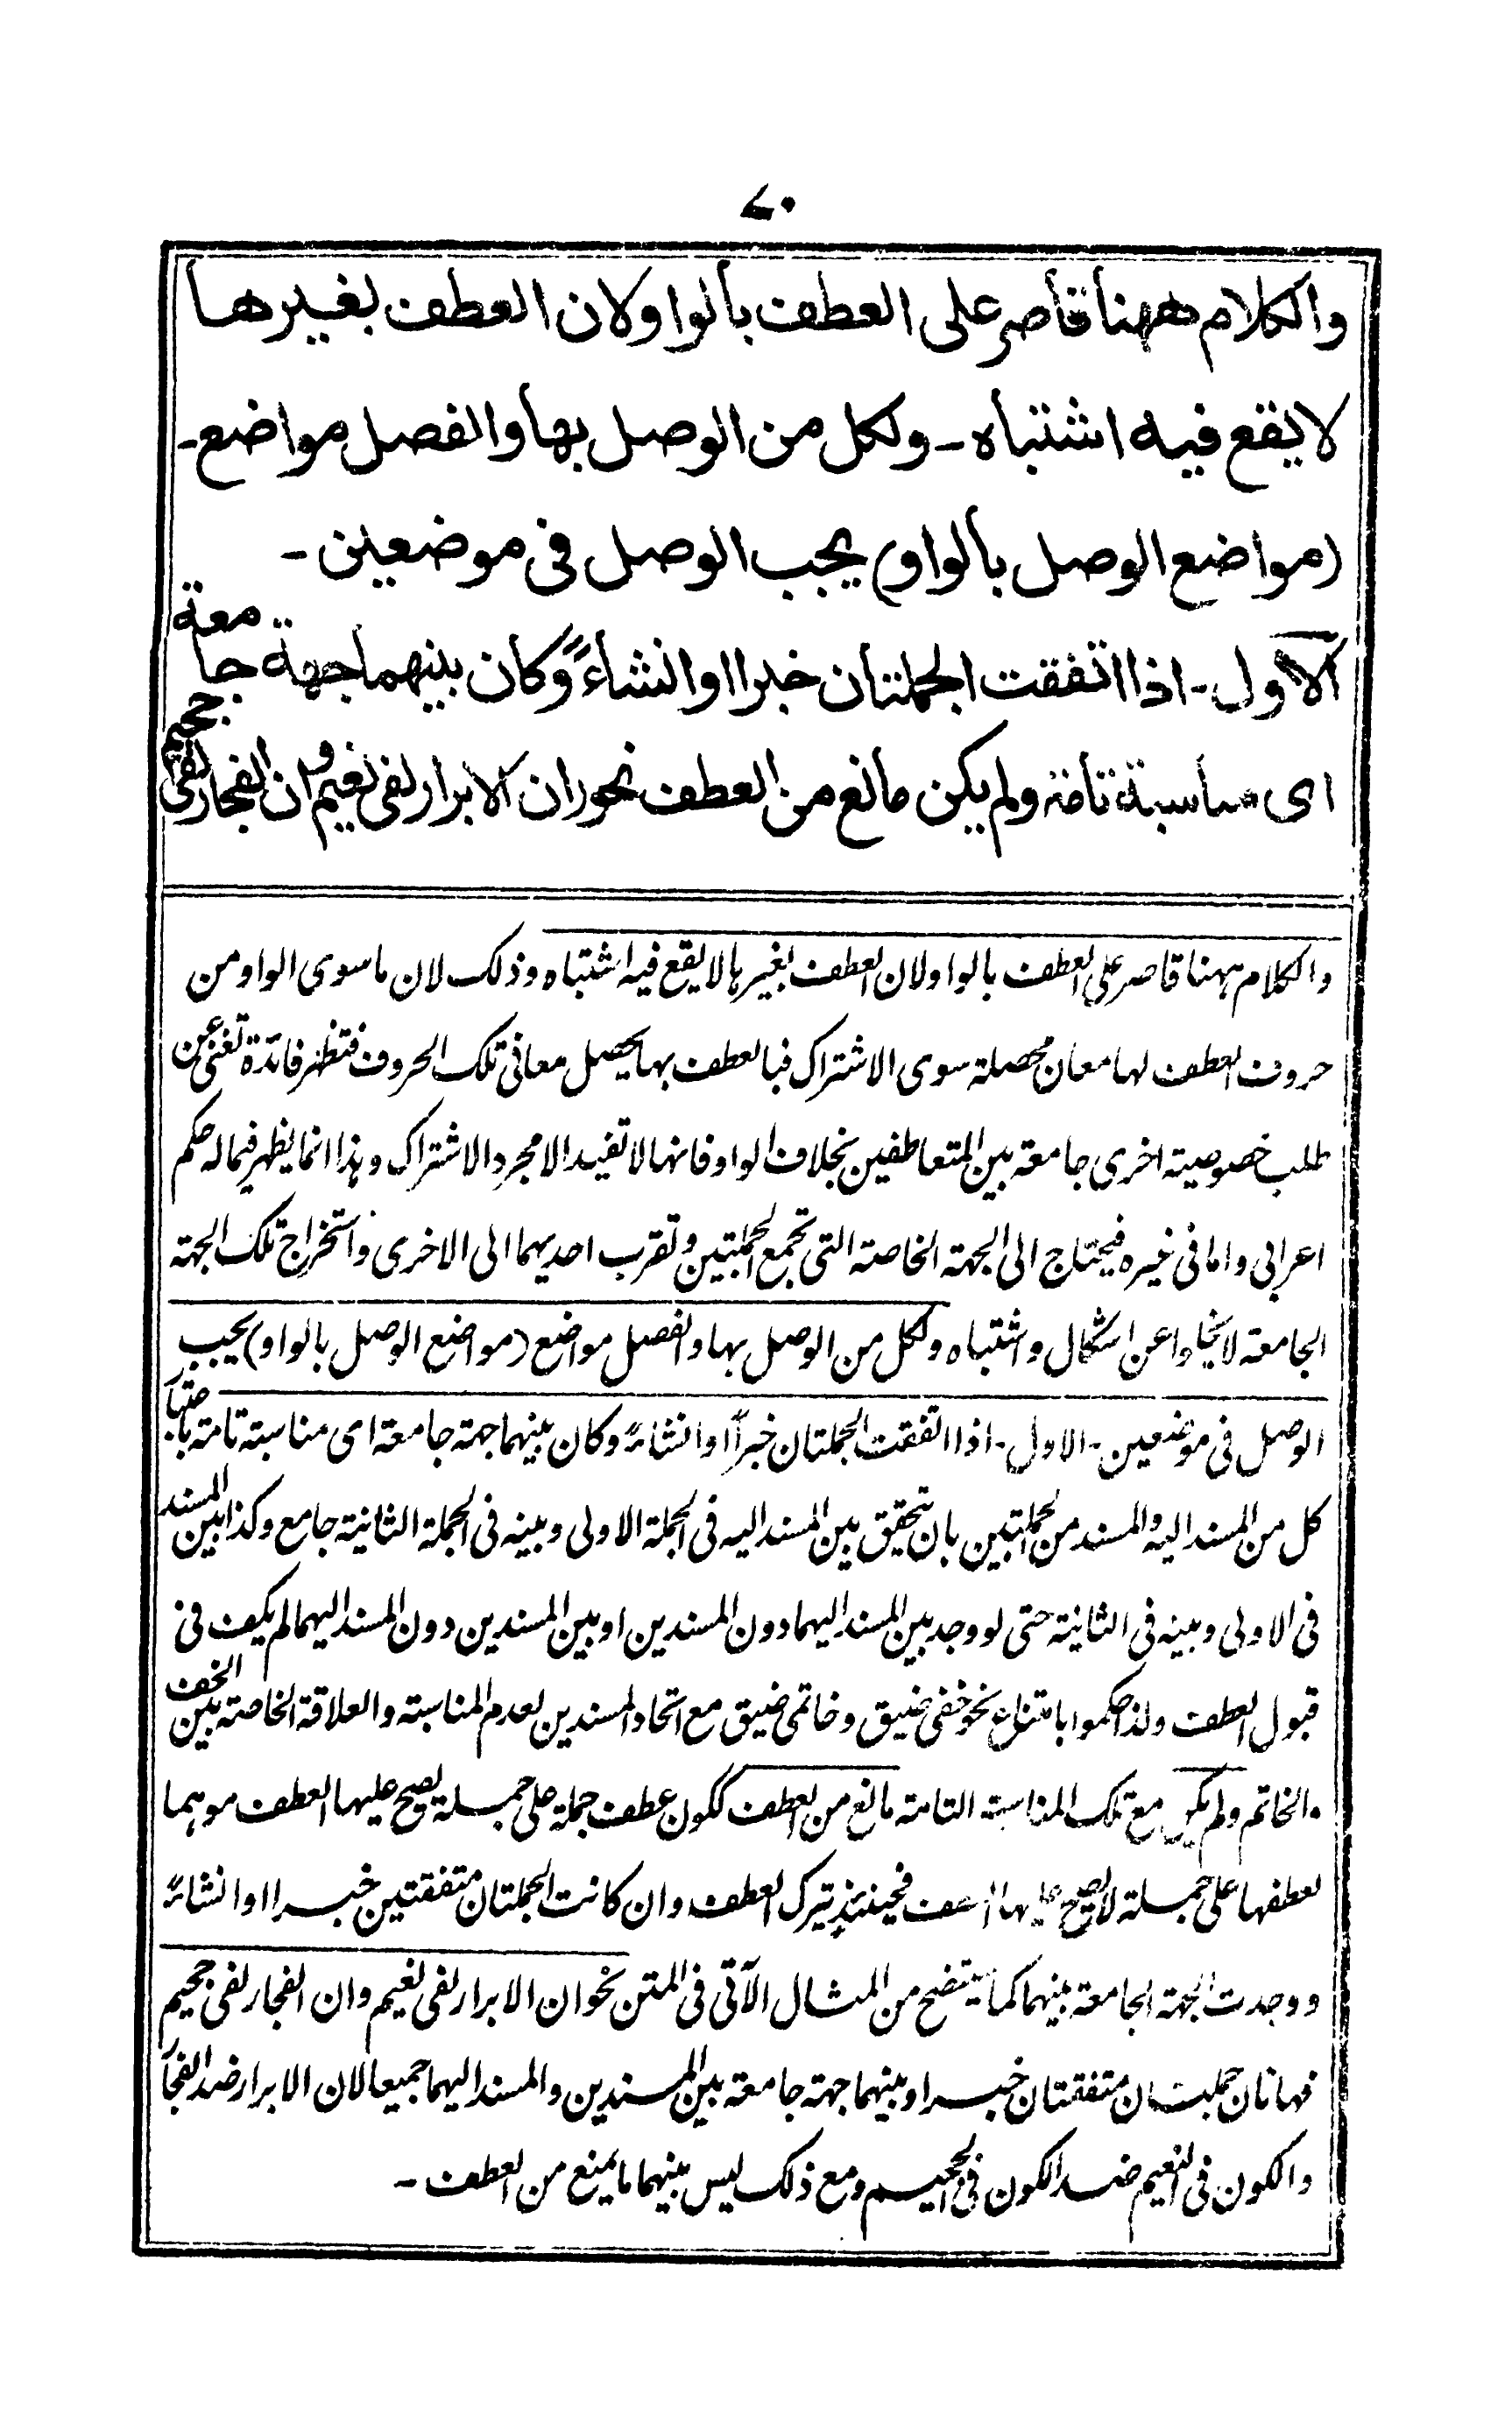 ٧٠
والكلام ههنا قاصر على العطف بالواو لان العطف بغيرها
لا يقع فيه اشتباه - ولكل من الوصل بها والفصل مواضع -
(مواضع الوصل بالواو) يجب الوصل فى موضعين -
الاول - اذا اتفقت الجملتان خبرا او انشاءً وكان بينهما جهة جامعة
اى مناسبة تامة ولم يكن مانع من العطف نحو ان الابرار لفى نعيم وان الفجار لفى جحيم
والكلام ههنا قاصر على العطف بالواو لان العطف بغيرها لا يقع فيه اشتباه وذلك لان ما سوى الواو من
حروف العطف لها معان محصلة سوى الاشتراك فبالعطف بها يحصل معانى تلك الحروف فتظهر فائدة تغنى عن
طلب خصوصية اخرى جامعة بين المتعاطفين بخلاف الواو فانها لا تفيد الا مجرد الاشتراك وهذا انما يظهر فيما له حكم
اعرابى واما فى غيره فيحتاج الى الجهة الخاصة التى تجمع الجملتين وتقرب احديهما الى الاخرى واستخراج تلك الجهة
الجامعة لا يخلو عن اشكال واشتباه ولكل من الوصل بها والفصل مواضع (مواضع الوصل بالواو) يجب
الوصل فى موضعين - الاول - اذا اتفقت الجملتان خبرًا او انشاءً وكان بينهما جهة جامعة اى مناسبة تامة باعتبار
كل من المسند اليه والمسند من الجملتين بان تحقق بين المسند اليه فى الجملة الاولى وبينه فى الجملة الثانية جامع وكذا بين المسند
فى الاولى وبينه فى الثانية حتى لو وجد بين المسند اليهما دون المسندين او بين المسندين دون المسند اليهما لم يكف فى
قبول العطف ولذا حكموا بامتناع نحو خفى ضيق وخاتمى ضيق مع اتحاد المسندين لعدم المناسبة والعلاقة الخاصة بين الخف
والخاتم ولم يكن مع تلك المناسبة التامة مانع من العطف ككون عطف جملة على جملة يصح عليها العطف موهما
لعطفها على جملة لا يصح عليها العطف فحينئذٍ يترك العطف وان كانت الجملتان متفقتين خبرا او انشاءً
ووجدت الجهة الجامعة بينهما كما يتضح من المثال الآتى فى المتن نحو ان الابرار لفى نعيم وان الفجار لفى جحيم
فهاتان جملتان متفقتان خبرا وبينهما جهة جامعة بين المسندين والمسند اليهما جميعا لان الابرار ضد الفجار
والكون فى النعيم ضد الكون فى الجحيم ومع ذلك ليس بينهما ما يمنع من العطف -